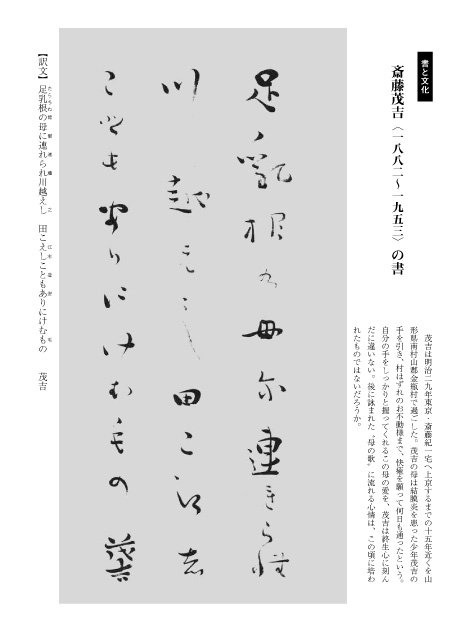 書と文化
斎藤茂吉〈一八八二〜一九五三〉の書
茂吉は明治二九年東京・斎藤紀一宅へ上京するまでの十五年近くを山
形県南村山郡金瓶村で過ごした。茂吉の母は結膜炎を患った少年茂吉の
手を引き、村はずれのお不動様まで、快癒を願って何日も通ったという。
自分の手をしっかりと握ってくれるこの母の愛を、茂吉は終生心に刻ん
だに違いない。後に詠まれた〝母の歌〟に流れる心情は、この頃に培わ
れたものではないだろうか。
足乳根 母尓連 ら
川越 し田こ 志
ことも安りにけむもの 茂吉
【訳文】足乳根の母に連れられ川越えし 田こえしこともありにけむもの 茂吉